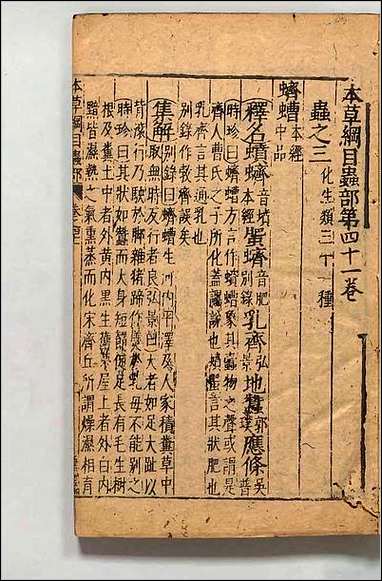 本草綱目蟲部第四十一卷
蟲之三 化生類三十一種
蠐螬 本經中品
釋名 蟦蠐 音墳 本經 蜰蠐 音肥 別錄 乳齊 弘景 地蠶 郭璞 應條 吳普
時珍曰蠐螬方言作蠐螬象其蟲物之聲或謂是
齊人曹氏之子所化蓋謬說也蟦蜰言其狀肥也
乳齊言其通乳也
別錄作敦齊誤矣
集解 別錄曰蠐螬生河內平澤及人家積糞草中
取無時反行者良弘景曰大者如足大趾以
背滾行乃駛於脚雜猪蹄作羹與乳母不能別之
時珍曰其狀如蠶而大身短節促足長有毛生樹
根及糞土中者外黃內黑生舊茅屋上者外白內
黯皆濕熱之氣熏蒸而化宋齊丘所謂燥濕相育
本草綱目蟲部 卷之四十一